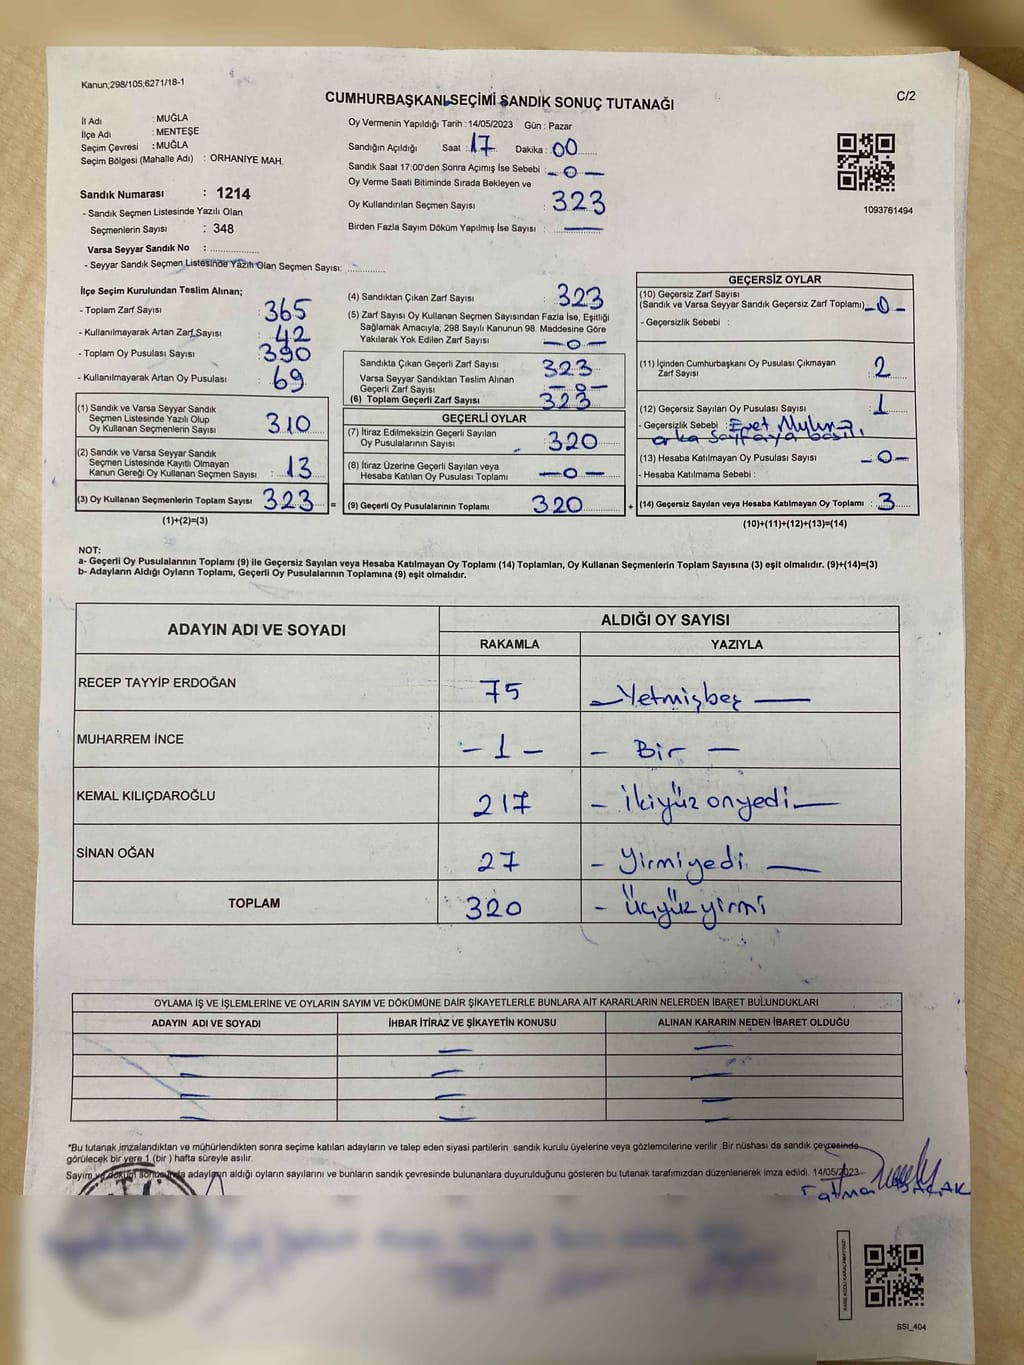 Kanun;298/105;6271/18-1
C/2
CUMHURBAŞKANI SEÇİMİ SANDIK SONUÇ TUTANAĞI
İl Adı : MUĞLA
İlçe Adı : MENTEŞE
Seçim Çevresi : MUĞLA
Seçim Bölgesi (Mahalle Adı) : ORHANİYE MAH.
Sandık Numarası : 1214
- Sandık Seçmen Listesinde Yazılı Olan
Seçmenlerin Sayısı : 348
Varsa Seyyar Sandık No :
- Seyyar Sandık Seçmen Listesinde Yazılı Olan Seçmen Sayısı:
Oy Vermenin Yapıldığı Tarih : 14/05/2023 Gün : Pazar
Sandığın Açıldığı Saat : 17 Dakika : 00
Sandık Saat 17:00'den Sonra Açımış İse Sebebi : - 0 -
Oy Verme Saati Bitiminde Sırada Bekleyen ve
Oy Kullandırılan Seçmen Sayısı : 323
Birden Fazla Sayım Döküm Yapılmış İse Sayısı : —
1093761494
İlçe Seçim Kurulundan Teslim Alınan;
- Toplam Zarf Sayısı : 365
- Kullanılmayarak Artan Zarf Sayısı : 42
- Toplam Oy Pusulası Sayısı : 390
- Kullanılmayarak Artan Oy Pusulası : 69
(1) Sandık ve Varsa Seyyar Sandık
Seçmen Listesinde Yazılı Olup
Oy Kullanan Seçmenlerin Sayısı : 310
(2) Sandık ve Varsa Seyyar Sandık
Seçmen Listesinde Kayıtlı Olmayan
Kanun Gereği Oy Kullanan Seçmen Sayısı : 13
(3) Oy Kullanan Seçmenlerin Toplam Sayısı : 323 =
(1)+(2)=(3)
(4) Sandıktan Çıkan Zarf Sayısı : 323
(5) Zarf Sayısı Oy Kullanan Seçmen Sayısından Fazla İse, Eşitliği
Sağlamak Amacıyla; 298 Sayılı Kanunun 98. Maddesine Göre
Yakılarak Yok Edilen Zarf Sayısı : - 0 -
Sandıkta Çıkan Geçerli Zarf Sayısı : 323
Varsa Seyyar Sandıktan Teslim Alınan
Geçerli Zarf Sayısı : - 0 -
(6) Toplam Geçerli Zarf Sayısı : 323
GEÇERLİ OYLAR
(7) İtiraz Edilmeksizin Geçerli Sayılan
Oy Pusulalarının Sayısı : 320
(8) İtiraz Üzerine Geçerli Sayılan veya
Hesaba Katılan Oy Pusulası Toplamı : - 0 -
(9) Geçerli Oy Pusulalarının Toplamı : 320 +
GEÇERSİZ OYLAR
(10) Geçersiz Zarf Sayısı
(Sandık ve Varsa Seyyar Sandık Geçersiz Zarf Toplamı) : - 0 -
- Geçersizlik Sebebi :
(11) İçinden Cumhurbaşkanı Oy Pusulası Çıkmayan
Zarf Sayısı : 2
(12) Geçersiz Sayılan Oy Pusulası Sayısı : 1
- Geçersizlik Sebebi : Evet Mührü
arka sayfaya basılı.
(13) Hesaba Katılmayan Oy Pusulası Sayısı : - 0 -
- Hesaba Katılmama Sebebi :
(14) Geçersiz Sayılan veya Hesaba Katılmayan Oy Toplamı : 3
(10)+(11)+(12)+(13)=(14)
NOT:
a- Geçerli Oy Pusulalarının Toplamı (9) ile Geçersiz Sayılan veya Hesaba Katılmayan Oy Toplamı (14) Toplamları, Oy Kullanan Seçmenlerin Toplam Sayısına (3) eşit olmalıdır. (9)+(14)=(3)
b- Adayların Aldığı Oyların Toplamı, Geçerli Oy Pusulalarının Toplamına (9) eşit olmalıdır.
ADAYIN ADI VE SOYADI
ALDIĞI OY SAYISI
RAKAMLA YAZIYLA
RECEP TAYYİP ERDOĞAN 75 - Yetmişbeş —
MUHARREM İNCE - 1 - - Bir —
KEMAL KILIÇDAROĞLU 217 - ikiyüz onyedi —
SİNAN OĞAN 27 - Yirmiyedi —
TOPLAM 320 - Üçyüzyirmi
OYLAMA İŞ VE İŞLEMLERİNE VE OYLARIN SAYIM VE DÖKÜMÜNE DAİR ŞİKAYETLERLE BUNLARA AİT KARARLARIN NELERDEN İBARET BULUNDUKLARI
ADAYIN ADI VE SOYADI İHBAR İTİRAZ VE ŞİKAYETİN KONUSU ALINAN KARARIN NEDEN İBARET OLDUĞU
*Bu tutanak imzalandıktan ve mühürlendikten sonra seçime katılan adayların ve talep eden siyasi partilerin sandık kurulu üyelerine veya gözlemcilerine verilir .Bir nüshası da sandık çevresinde
görülecek bir yere 1 (bir ) hafta süreyle asılır.
Sayım ve döküm sonucunda adayların aldığı oyların sayılarını ve bunların sandık çevresinde bulunanlara duyurulduğunu gösteren bu tutanak tarafımızdan düzenlenerek imza edildi. 14/05/2023
Fatma
SSİ_404